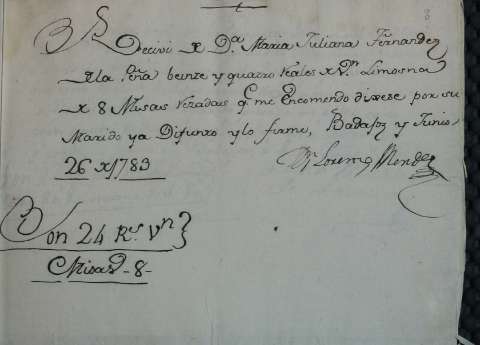 Recivi de Dª Maria Juliana Fernandez
de la Peña beinte y quatro reales de Vn Limosna
de 8 Misas rezadas q me Encomendo dixese por su
Marido ya Difunto y lo firme, Badajoz y Junio
26 de 1783
Dn Lorenzo Mendez
Son 24 Rs Vn }
Misas - 8 -